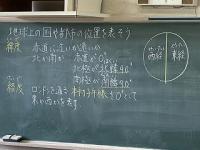 地球上の国や都市の位置を表そう
緯度 赤道に近いか遠いか
北か南か 赤道が0°
北極が北緯90°
南極が南緯90°
経度 ロンドンを通る本初子午線を0°として
東か西かを表す
西経 東経